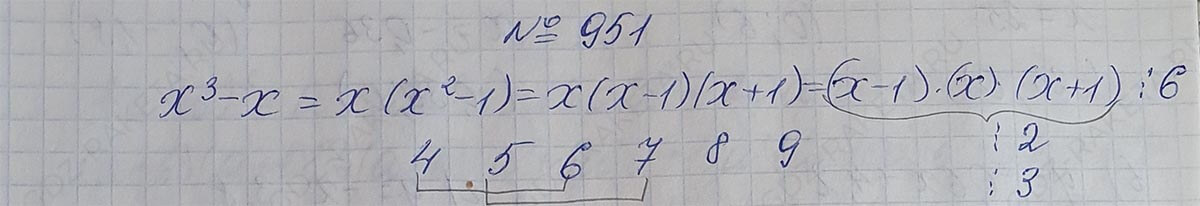 № 951
x³-x = x(x²-1)=x(x-1)(x+1)=(x-1)·(x)·(x+1)⋮6
4 5 6 7 8 9 ⋮ 2
⋮ 3